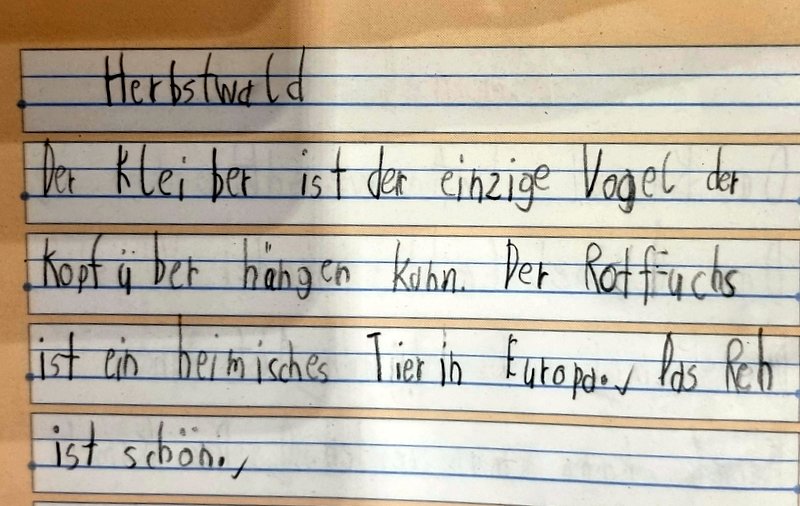 Herbstwald
Der Kleiber ist der einzige Vogel der
kopfüber hängen kahn. Der Rotfuchs
ist ein heimisches Tier in Europa. Das Reh
ist schön.